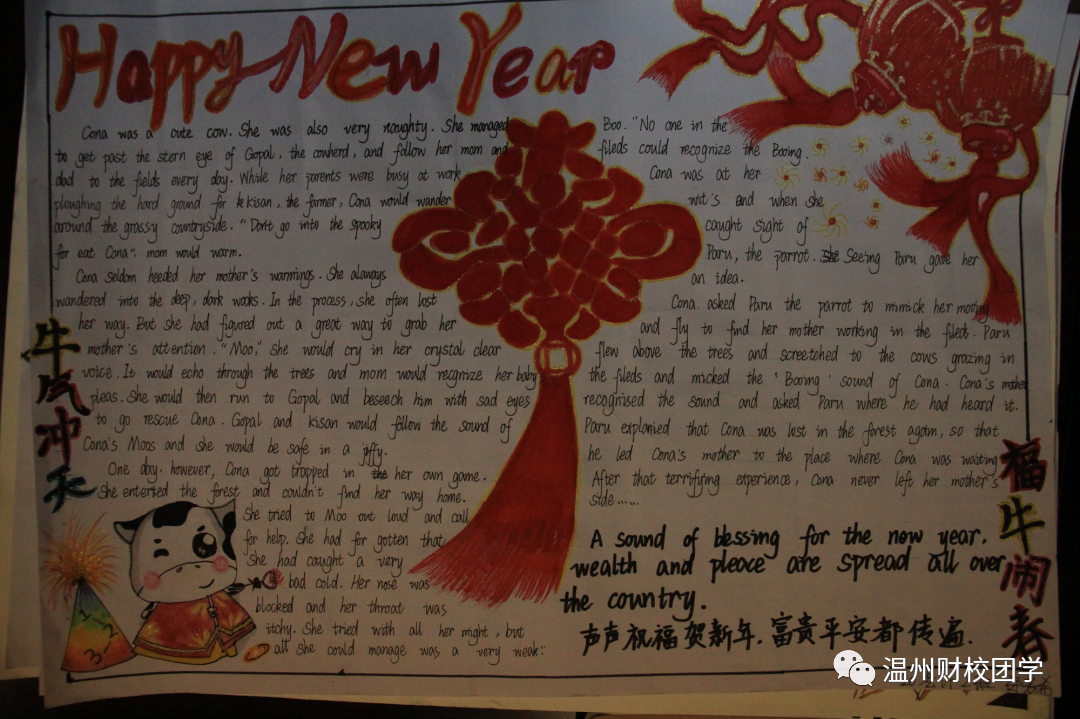 Happy New Year
Cona was a cute cow. She was also very naughty. She managed
to get past the stern eye of Gopal, the cowherd, and follow her mom and
dad to the fields every day. While her parents were busy at work
ploughing the hard ground for kkisan, the farmer, Cona would wander
around the grassy countryside. "Don't go into the spooky
for eat Cona". mom would warm.
Cona seldom heeded her mother's warmings. She alaways
wandered into the deep, dark wooks. In the process, she often lost
her way. But she had figured out a great way to grab her
mother's attention. "Moo," she would cry in her crystal clear
voice. It would echo through the trees and mom would recgnize her baby
pleas. She would then run to Gopal and beseech him with sad eyes
to go rescue Cona. Gopal and Kisan would follow the sound of
Cona's Moos and she would be safe in a jiffy.
One day. however, Cona got trapped in her own game.
She enterted the forest and couldn't find her way home.
She tried to Moo out loud and call
for help. She had for gotten that
she had caught a very
bad cold. Her nose was
blocked and her throat was
itchy. She tried with all her might, but
all she could manage was a very weak:
Boo. "No one in the
fileds could recognize the Booing.
Cona was at her
wit's end when she
caught sight of
Paru, the parrot. She Seeing Paru gave her
an idea.
Cona asked Paru the parrot to mimick her mooing
and fly to find her mother working in the fileds. Paru
flew above the trees and screetched to the cows grazing in
the fileds and micked the 'Booing' sound of Cona. Cona's mother
recognised the sound and asked Paru where he had heard it.
Paru explanied that Cona was lost in the forest again, so that
he led Cona's mother to the place where Cona was waiting
After that terrifying experience, Cona never left her mother's
side......
A sound of blessing for the now year.
wealth and pleace are spread all over
the country.
声声祝福贺新年.富贵平安都传遍.
牛气冲天
福牛闹春
1
2
3
温州财校团学